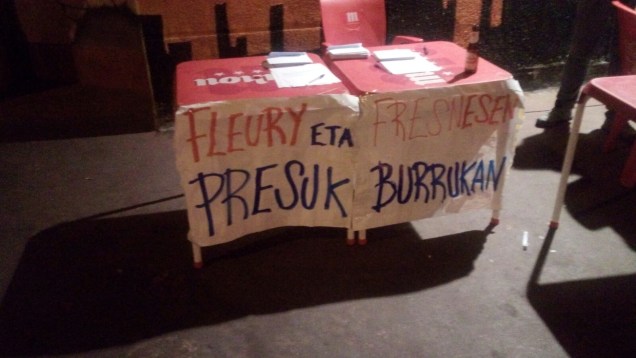 FLEURY ETA FRESNESEN
PRESUK BURRUKAN